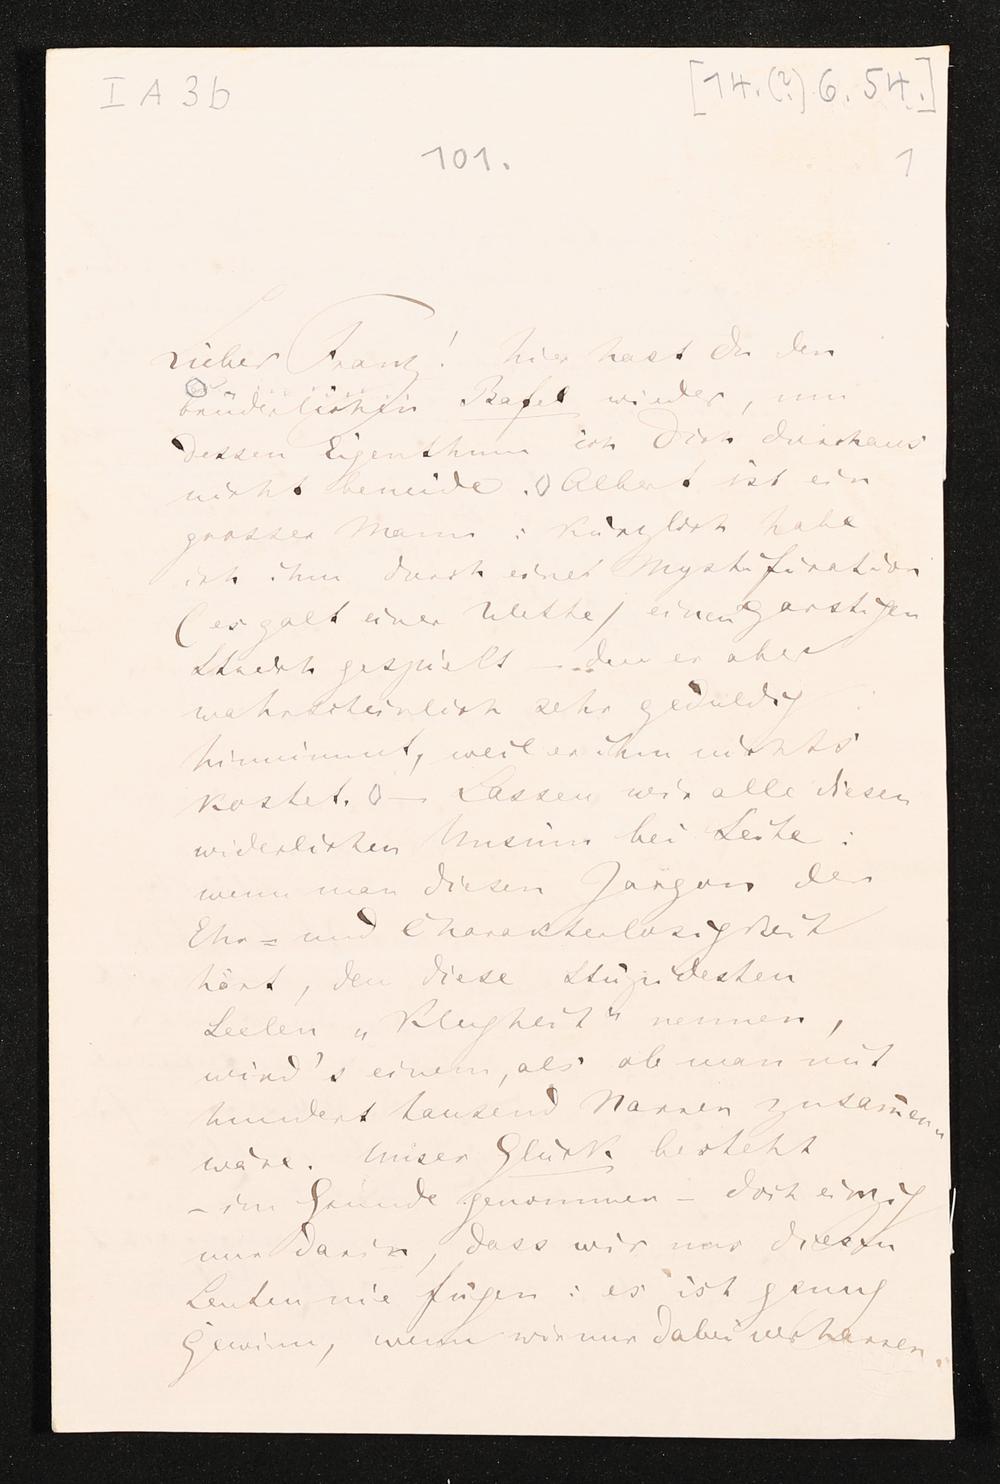 I A 3b
[14.(?) 6. 54.]
101.
1
Lieber Franz! hier hast du den
brüderlichen Bafel wieder, um
dessen Eigenthum ich Dich durchaus
nicht beneide. () Albert ist ein
grosser Mann: kürzlich habe
ich ihm durch einer Mystification
(es galt einer Wette) einen garstigen
Streich gespielt — den er aber
wahrscheinlich sehr geduldig
hinnimmt, weil er ihm nichts
kostet. () — Lassen wir alle diesen
widerlichen Unsinn bei Seite:
wenn man diesen Jargon der
Ehr= und Charakterlosigkeit
hört, den diese stupidesten
Seelen „Klugheit" nennen,
wird's einem, als ob man mit
hundert tausend Narren zusam̄en
wäre. Unser Glück besteht
– im Grunde genommen – doch einzig
nur darin, dass wir uns diesen
Leuten nie fügen: es ist genug
Gewinn, wenn wir nur dabei verharren.